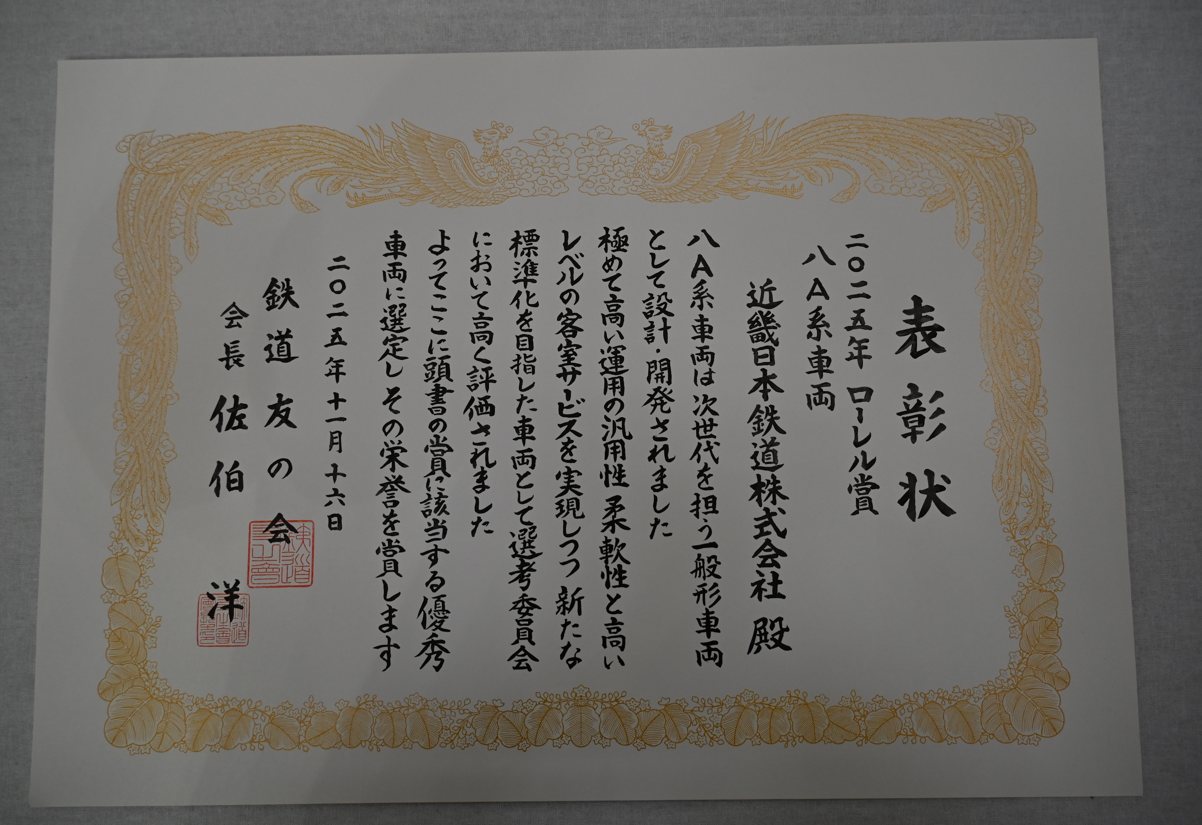 表彰状
二〇二五年 ローレル賞
八A系車両
近畿日本鉄道株式会社 殿
八A系車両は次世代を担う一般形車両
として設計・開発されました
極めて高い運用の汎用性 柔軟性と高い
レベルの客室サービスを実現しつつ 新たな
標準化を目指した車両として選考委員会
において高く評価されました
よってここに頭書の賞に該当する優秀
車両に選定し その栄誉を賞します
二〇二五年十一月十六日
鉄道友の会
会長 佐伯 洋